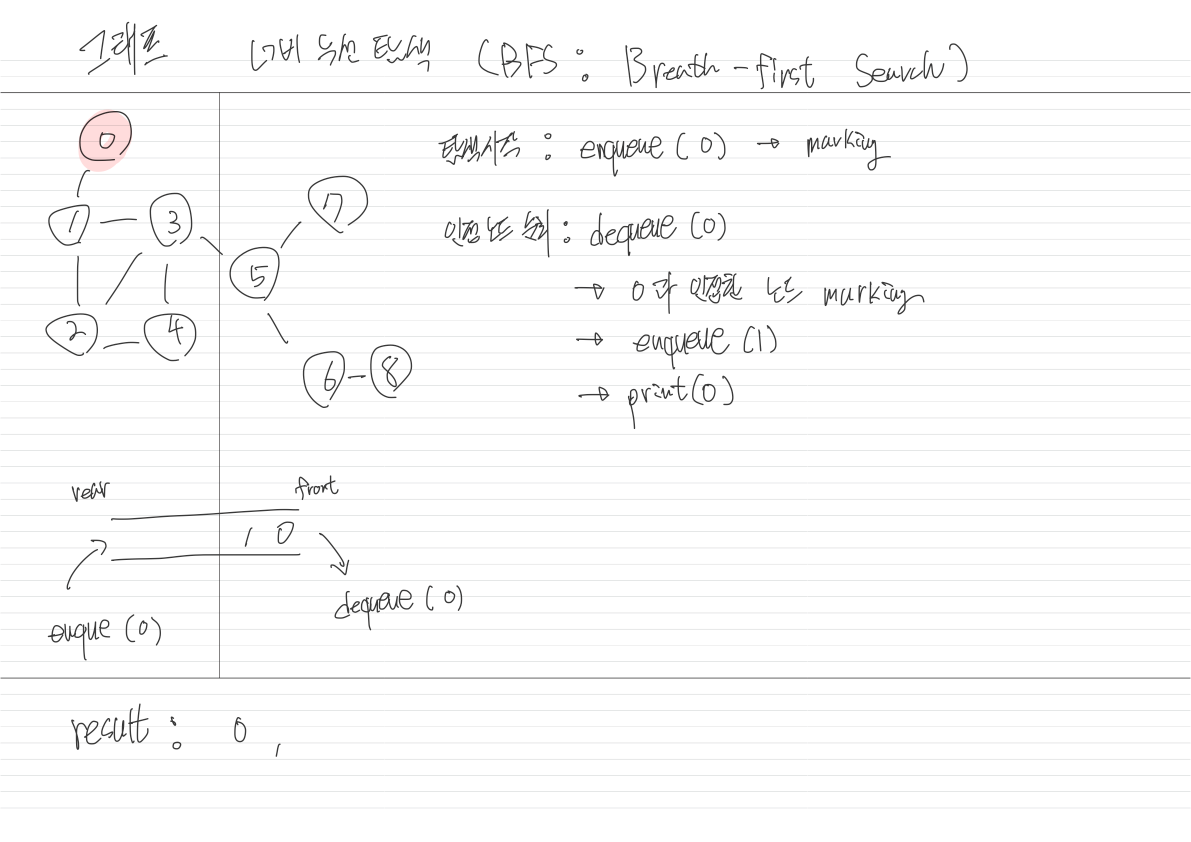 그래프 너비 우선 탐색 (BFS : Breath-first Search)
0
1 3
7
5
2 4
6 8
탐색시작 : enqueue (0) → marking
인접 노드 처리 : dequeue (0)
→ 0과 인접한 노드 marking
→ enqueue (1)
→ print(0)
rear front
1 0
enque (0)
dequeue (0)
result : 0 ,